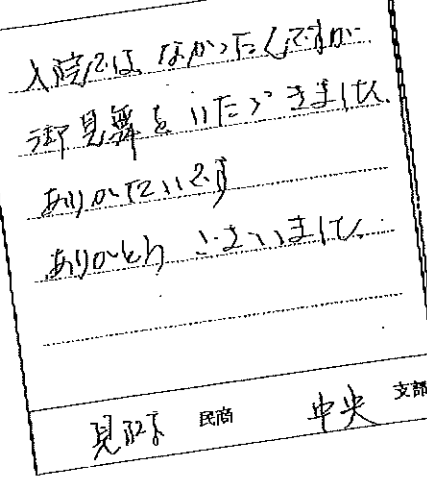 入院ではなかったんですが
御見舞をいただきました。
ありがたいです
ありがとうございました。
民商 中央 支部